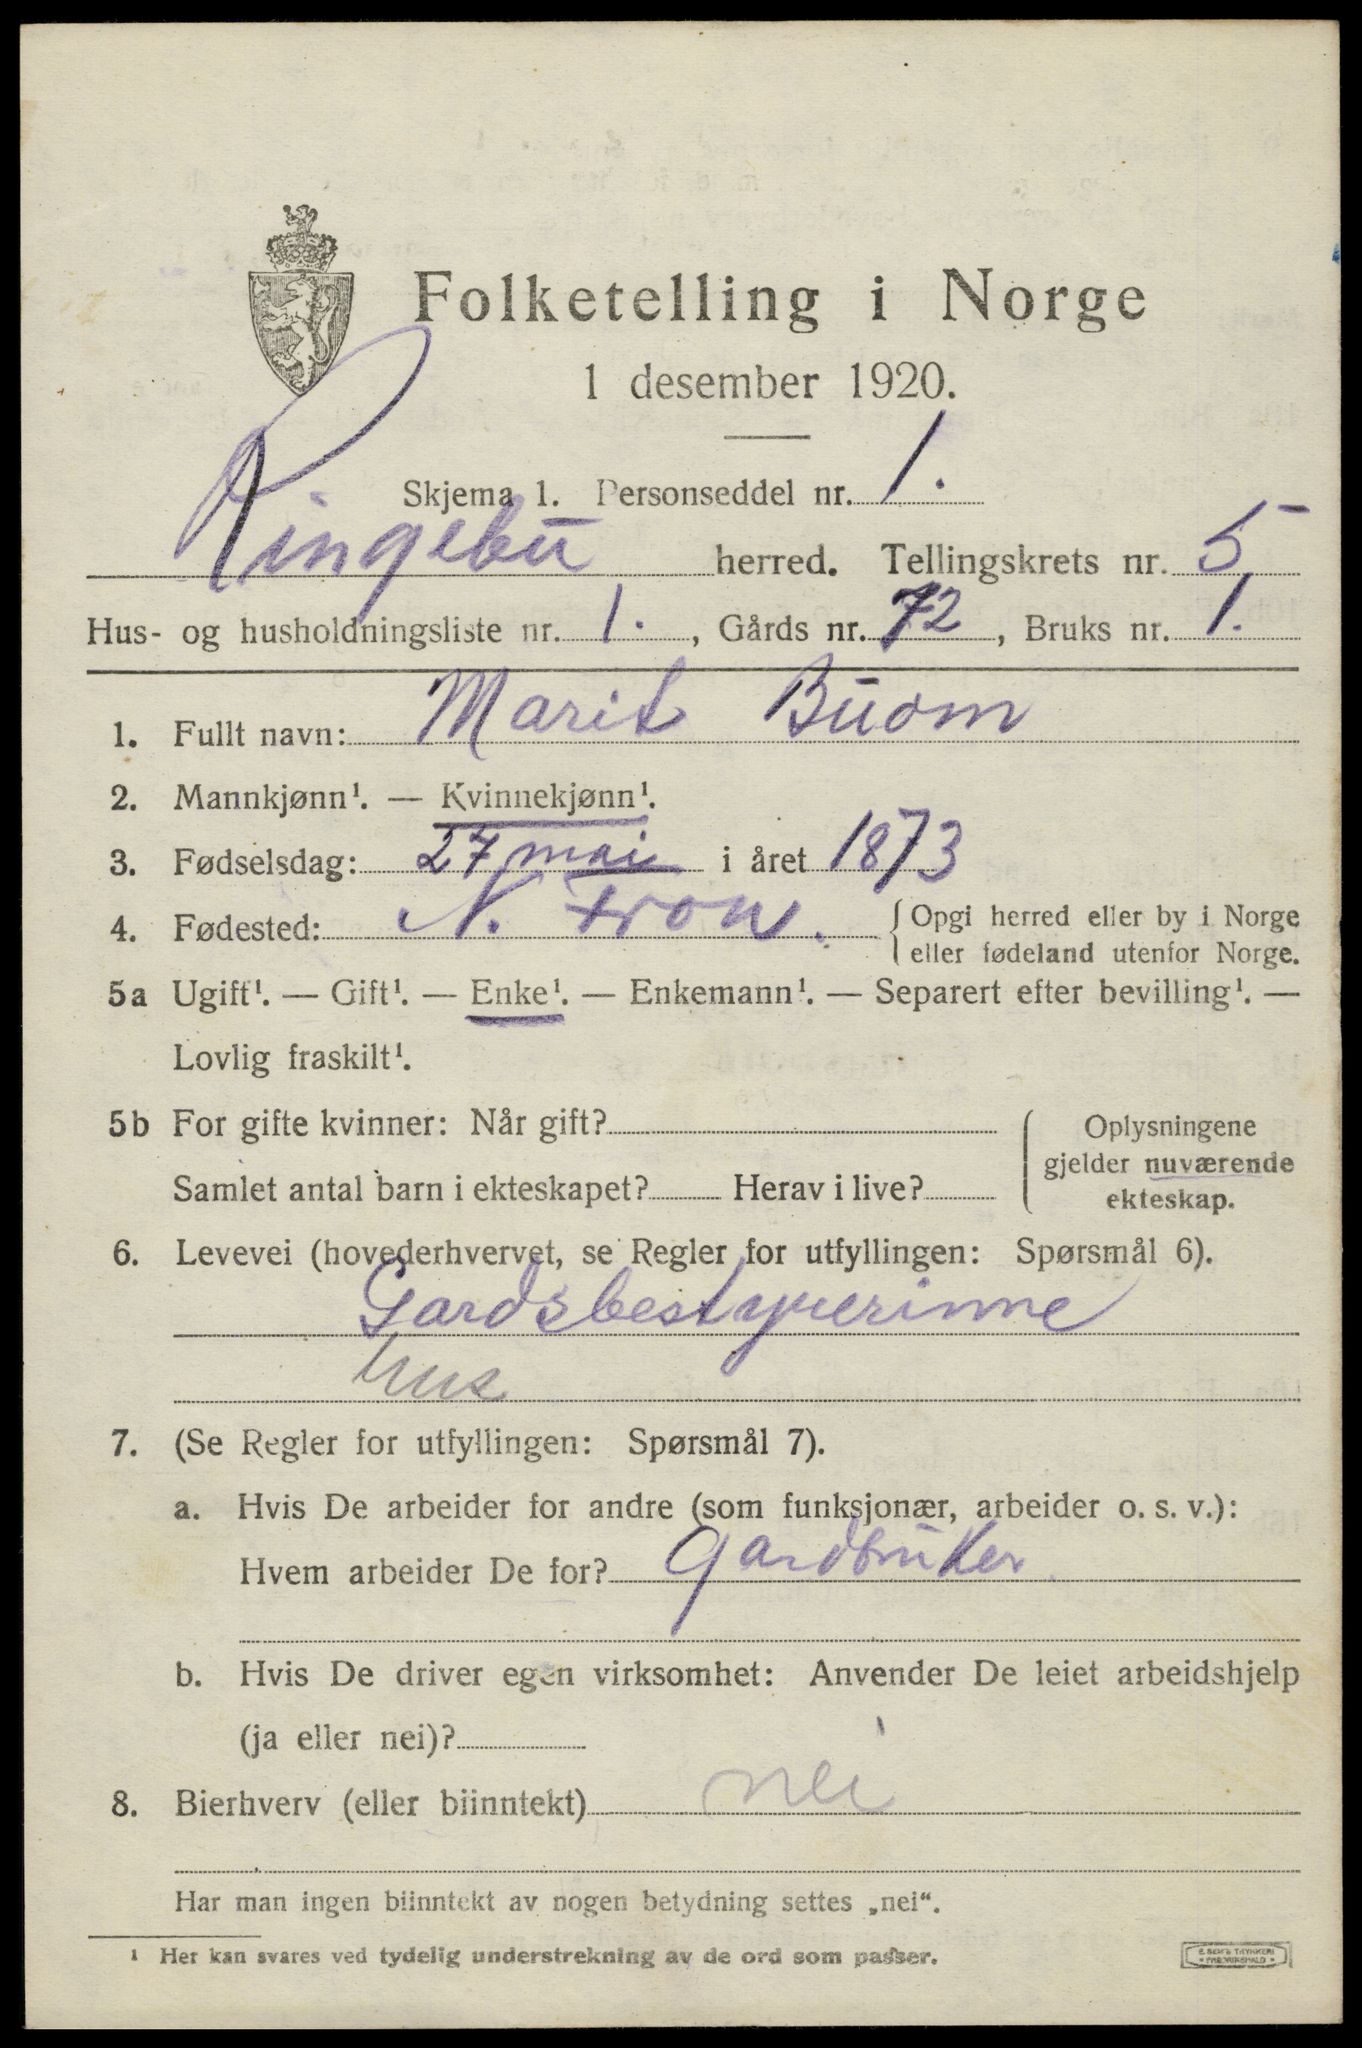 Folketelling i Norge
1 desember 1920.
Skjema 1. Personseddel nr. 1.
Ringebu herred. Tellingskrets nr. 5
Hus- og husholdningsliste nr. 1. , Gårds nr. 72 , Bruks nr. 1.
1. Fullt navn: Marit Buom
2. Mannkjønn¹. — Kvinnekjønn¹.
3. Fødselsdag: 27 mai i året 1873
4. Fødested: N. Fron. { Opgi herred eller by i Norge
eller fødeland utenfor Norge.
5a Ugift¹. — Gift¹. — Enke¹. — Enkemann¹. — Separert efter bevilling¹. —
Lovlig fraskilt¹.
5b For gifte kvinner: Når gift?
Samlet antal barn i ekteskapet? Herav i live?
Oplysningene
gjelder nuværende
ekteskap.
6. Levevei (hovederhvervet, se Regler for utfyllingen: Spørsmål 6).
Gardsbestyrerinne
hus
7. (Se Regler for utfyllingen: Spørsmål 7).
a. Hvis De arbeider for andre (som funksjonær, arbeider o. s. v.):
Hvem arbeider De for? Gardbruker
b. Hvis De driver egen virksomhet: Anvender De leiet arbeidshjelp
(ja eller nei)?
8. Bierhverv (eller biinntekt) nei
Har man ingen biinntekt av nogen betydning settes „nei“.
¹ Her kan svares ved tydelig understrekning av de ord som passer.
E. SEM'S TRYKKERI
FREDRIKSHALD